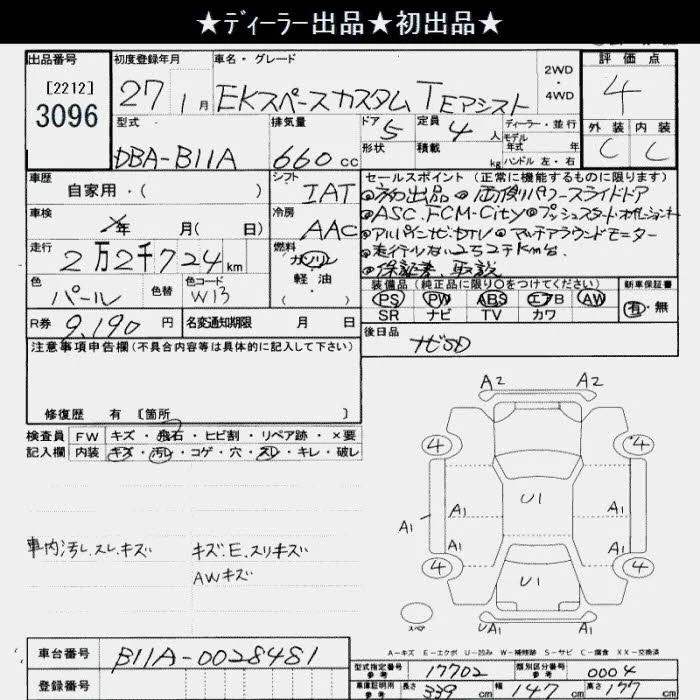 ★ディーラー出品★初出品★
出品番号
[2212]
3096
初度登録年月
27 1月
車名・グレード
EKスペースカスタム TEアシスト
2WD
・
4WD
評価点
4
外装 内装
C C
型式
DBA-B11A
排気量
660cc
ドア 5
形状
定員 4人
積載 kg
ディーラー・並行
モデル
年式 年
ハンドル 左・右
車歴
自家用・( )
シフト
IAT
セールスポイント(正常に機能するものに限ります)
●初出品 ●両側パワースライドドア
●ASC.FCM-City●プッシュスタート
●アルパインナビ.TV ●マルチアラウンドモニター
●走行少ない2万2千km台.
●保証書、取説
車検
年 月( 日)
冷房
AAC
走行
2万2千724km
燃料
ガソリン
軽油
( )
色
パール
色替
色コード
W13
装備品(純正品に限り○をつけてください)
PS PW ABS エアB AW
SR ナビ TV カワ
新車保証書
有・無
R券 9,190円
名変通知期限 月 日
後日品
ナビSD
注意事項申告欄(不具合内容等は具体的に記入して下さい)
修復歴 有 〔箇所 〕
検査員
記入欄
FW キズ・飛石・ヒビ割・リペア跡・×要
内装 キズ・汚レ・コゲ・穴・スレ・キレ・破レ
車内汚レ.スレ.キズ
キズ.E.スリキズ
AWキズ
A2 A2
4 4
A1 U1 A1
A1
A1 A1
4 4
U1
A1 A1
スペア
A-キズ E-エクボ U-凹み W-補修跡 S-サビ C-腐食 XX-交換済
車台番号
B11A-0028481
登録番号
型式指定番号
参考
17702
類別区分番号
参考
0004
車庫証明用
参考
長さ 339cm 幅 147cm 高さ 177cm